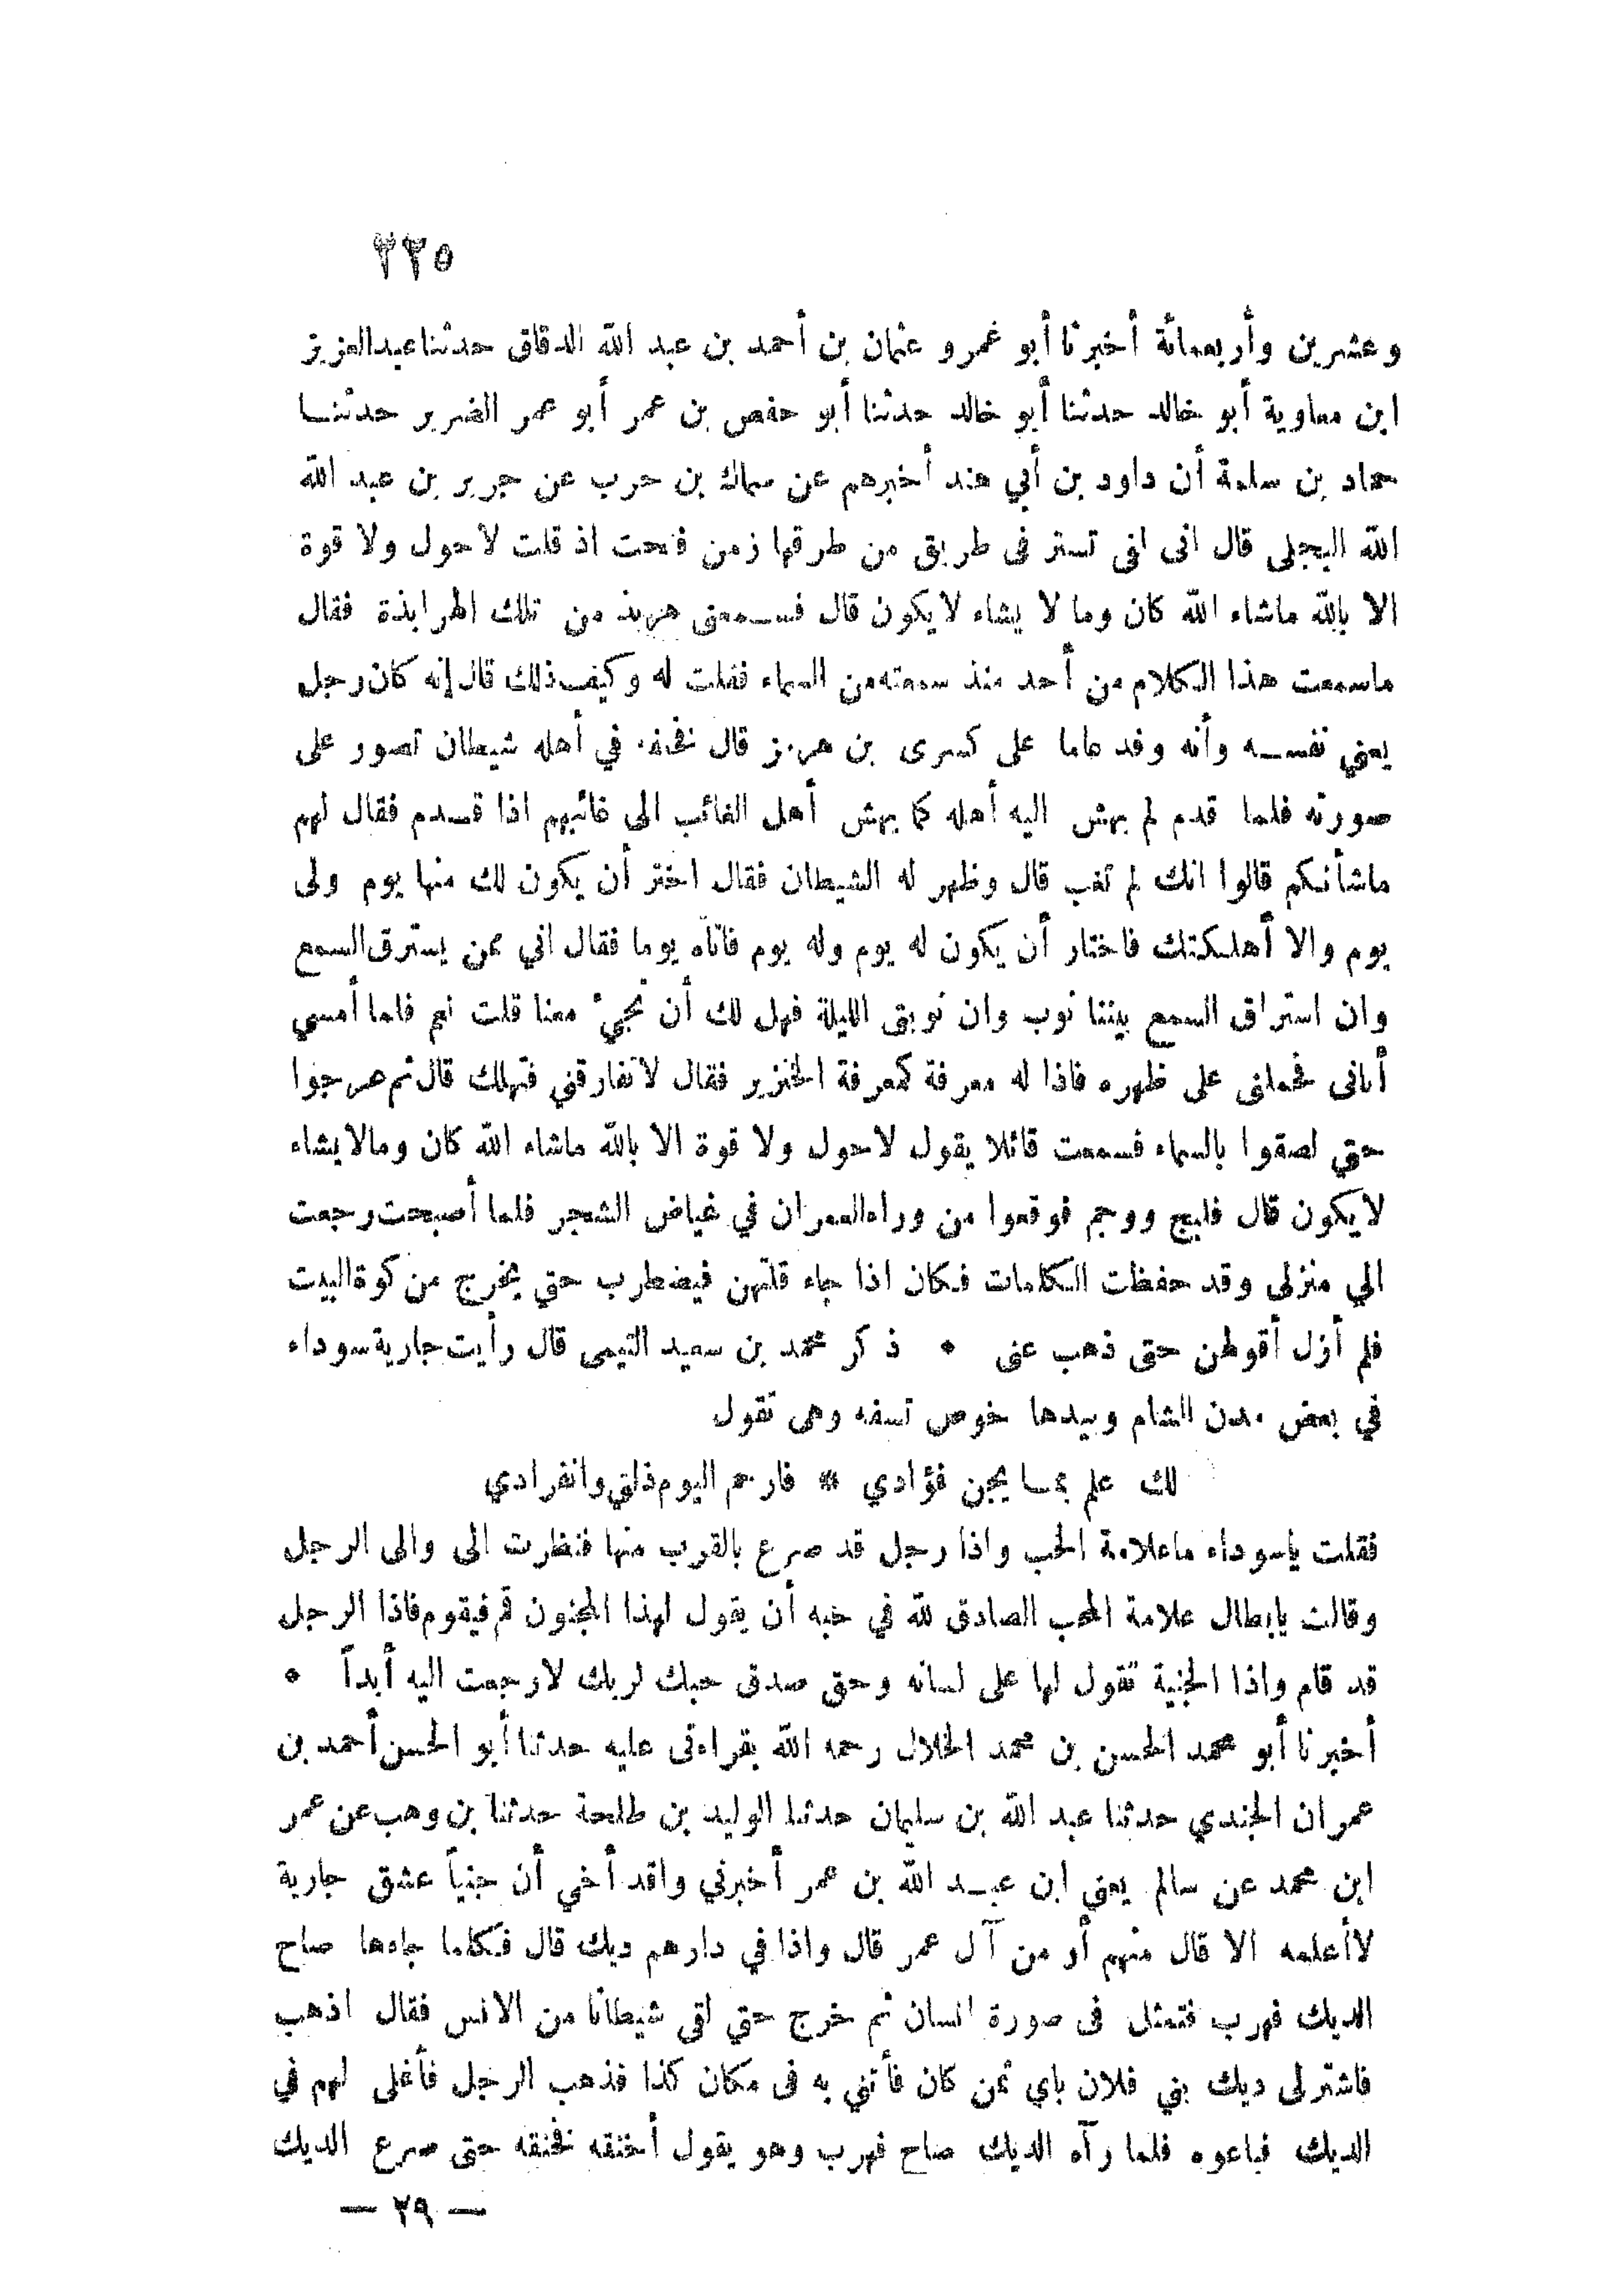 ٢٢٥
وعشرين وأربعمائة أخبرنا أبو عمرو عثمان بن أحمد بن عبد الله الدقاق حدثنا عبد العزيز
ابن معاوية أبو خالد حدثنا أبو خالد حدثنا أبو حفص بن عمر أبو عمر الضرير حدثنا
حماد بن سلمة أن داود بن أبي هند أخبرهم عن سماك بن حرب عن جرير بن عبد الله
الله البجلى قال انى افى تستر فى طريق من طرقها زمن فتحت اذ قلت لاحول ولا قوة
الا بالله ماشاء الله كان وما لا يشاء لا يكون قال فسمعنى هربذ من تلك الهرابذة فقال
ماسمعت هذا الكلام من أحد منذ سمعته من السماء فقلت له وكيف ذلك قال إنه كان رجل
يعني نفسه وأنه وفد عاما على كسرى بن هرمز قال فخلفه في أهله شيطان تصور على
صورته فلما قدم لم يهش اليه أهله كما يهش أهل الغائب الى غائبهم اذا قدم فقال لهم
ماشأنكم قالوا انك لم تغب قال وظهر له الشيطان فقال اختر أن يكون لك منها يوم ولى
يوم والا أهلكتك فاختار أن يكون له يوم وله يوم فاتاه يوما فقال اني ممن يسترق السمع
وان استراق السمع بيننا نوب وان نوبتى الليلة فهل لك أن تجيء معنا قلت نعم فلما أمسي
أتانى فحملنى على ظهره فاذا له معرفة كمعرفة الخنزير فقال لا تفارقني فتهلك قال ثم عرجوا
حتي لصقوا بالسماء فسمعت قائلا يقول لاحول ولا قوة الا بالله ماشاء الله كان ومالا يشاء
لايكون قال فلبج ووجم فوقعوا من وراء العمران في غياض الشجر فلما أصبحت رجعت
الي منزلى وقد حفظت الكلمات فكان اذا جاء قلتهن فيضطرب حتي يخرج من كوة البيت
فلم أزل أقولهن حتى ذهب عنى * ذكر محمد بن سعيد التيمى قال رأيت جارية سوداء
في بعض مدن الشام وبيدها خوص تسفه وهى تقول
لك علم بما يجن فؤادي * فارحم اليوم ذلتي وانفرادي
فقلت ياسوداء ماعلامة الحب واذا رجل قد صرع بالقرب منها فنظرت الى والى الرجل
وقالت يابطال علامة المحب الصادق لله في حبه أن يقول لهذا المجنون قم فيقوم فاذا الرجل
قد قام واذا الجنية تقول لها على لسانه وحق صدق حبك لربك لارجعت اليه أبداً *
أخبرنا أبو محمد الحسن بن محمد الخلال رحمه الله بقراءتى عليه حدثنا أبو الحسن أحمد بن
عمران الجندي حدثنا عبد الله بن سليمان حدثنا الوليد بن طلحة حدثنا بن وهب عن عمر
ابن محمد عن سالم يعني ابن عبد الله بن عمر أخبرني واقد أخي أن جنياً عشق جارية
لاأعلمه الا قال منهم أو من آل عمر قال واذا في دارهم ديك قال فكلما جاءها صاح
الديك فهرب فتمثل فى صورة انسان ثم خرج حتي لقى شيطانا من الانس فقال اذهب
فاشتر لى ديك بني فلان باي ثمن كان فأتني به فى مكان كذا فذهب الرجل فأغلى لهم في
الديك فباعوه فلما رآه الديك صاح فهرب وهو يقول أخنقه فخنقه حتى صرع الديك
— ٢٩ —